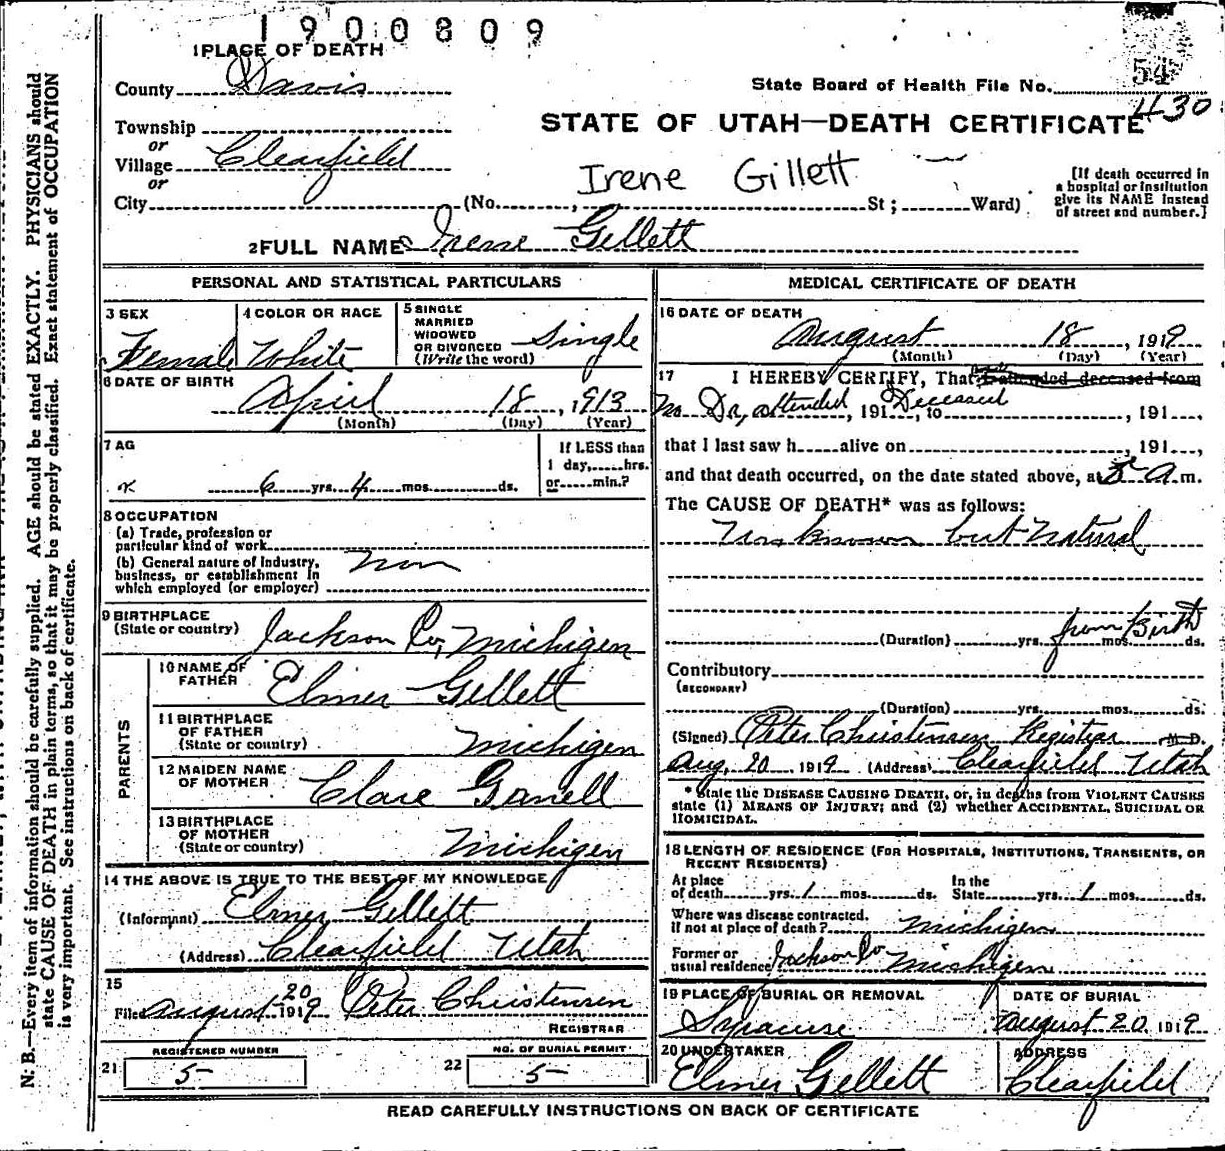 1900809
1 PLACE OF DEATH
County Davis
State Board of Health File No. 54
430
Township
or
Village Clearfield
or
City
STATE OF UTAH—DEATH CERTIFICATE
Irene Gillett
(No. , St ; Ward)
[If death occurred in
a hospital or institution
give its NAME instead
of street and number.]
2 FULL NAME Irene Gillett
PERSONAL AND STATISTICAL PARTICULARS
3 SEX
Female
4 COLOR OR RACE
White
5 SINGLE
MARRIED
WIDOWED
OR DIVORCED
(Write the word)
Single
6 DATE OF BIRTH
April 18, 1913
(Month) (Day) (Year)
7 AG
6 yrs. 4 mos. ds.
If LESS than
1 day, hrs.
or min.?
8 OCCUPATION
(a) Trade, profession or
particular kind of work
(b) General nature of Industry,
business, or establishment in
which employed (or employer)
Non
9 BIRTHPLACE
(State or country)
Jackson Co, Michigen
PARENTS
10 NAME OF
FATHER
Elmer Gellett
11 BIRTHPLACE
OF FATHER
(State or country)
Michigen
12 MAIDEN NAME
OF MOTHER
Clare
13 BIRTHPLACE
OF MOTHER
(State or country)
Michigen
14 THE ABOVE IS TRUE TO THE BEST OF MY KNOWLEDGE
(Informant) Elmer Gellett
(Address) Clearfield Utah
15
Filed August 20 1919 Peter Christensen
REGISTRAR
21 REGISTERED NUMBER
5
22 NO. OF BURIAL PERMIT
5
MEDICAL CERTIFICATE OF DEATH
16 DATE OF DEATH
August 18, 1919
(Month) (Day) (Year)
17 I HEREBY CERTIFY, That I attended deceased from
No Dr, attended, 191 Deceased, to , 191
that I last saw h alive on , 191 ,
and that death occurred, on the date stated above, a 5 A m.
The CAUSE OF DEATH* was as follows:
Unknown but Natural
from Birth
(Duration) yrs. mos. ds.
Contributory
(SECONDARY)
(Duration) yrs. mos. ds.
(Signed) Peter Christensen Registrar M. D.
Aug, 20 1919 (Address) Clearfield Utah
* State the DISEASE CAUSING DEATH, or, in deaths from VIOLENT CAUSES
state (1) MEANS OF INJURY; and (2) whether ACCIDENTAL, SUICIDAL OR
HOMICIDAL.
18 LENGTH OF RESIDENCE (FOR HOSPITALS, INSTITUTIONS, TRANSIENTS, OR
RECENT RESIDENTS)
At place
of death yrs. 1 mos. ds.
In the
State yrs. 1 mos. ds.
Where was disease contracted.
if not at place of death? Michigen
Former or
usual residence Jackson Co Michigen
19 PLACE OF BURIAL OR REMOVAL
Syracuse
DATE OF BURIAL
August 20 1919
20 UNDERTAKER
Elmer Gellett
ADDRESS
Clearfield
READ CAREFULLY INSTRUCTIONS ON BACK OF CERTIFICATE
N. B.—Every item of information should be carefully supplied. AGE should be stated EXACTLY. PHYSICIANS should
state CAUSE OF DEATH in plain terms, so that it may be properly classified. Exact statement of OCCUPATION
is very important. See instructions on back of certificate.